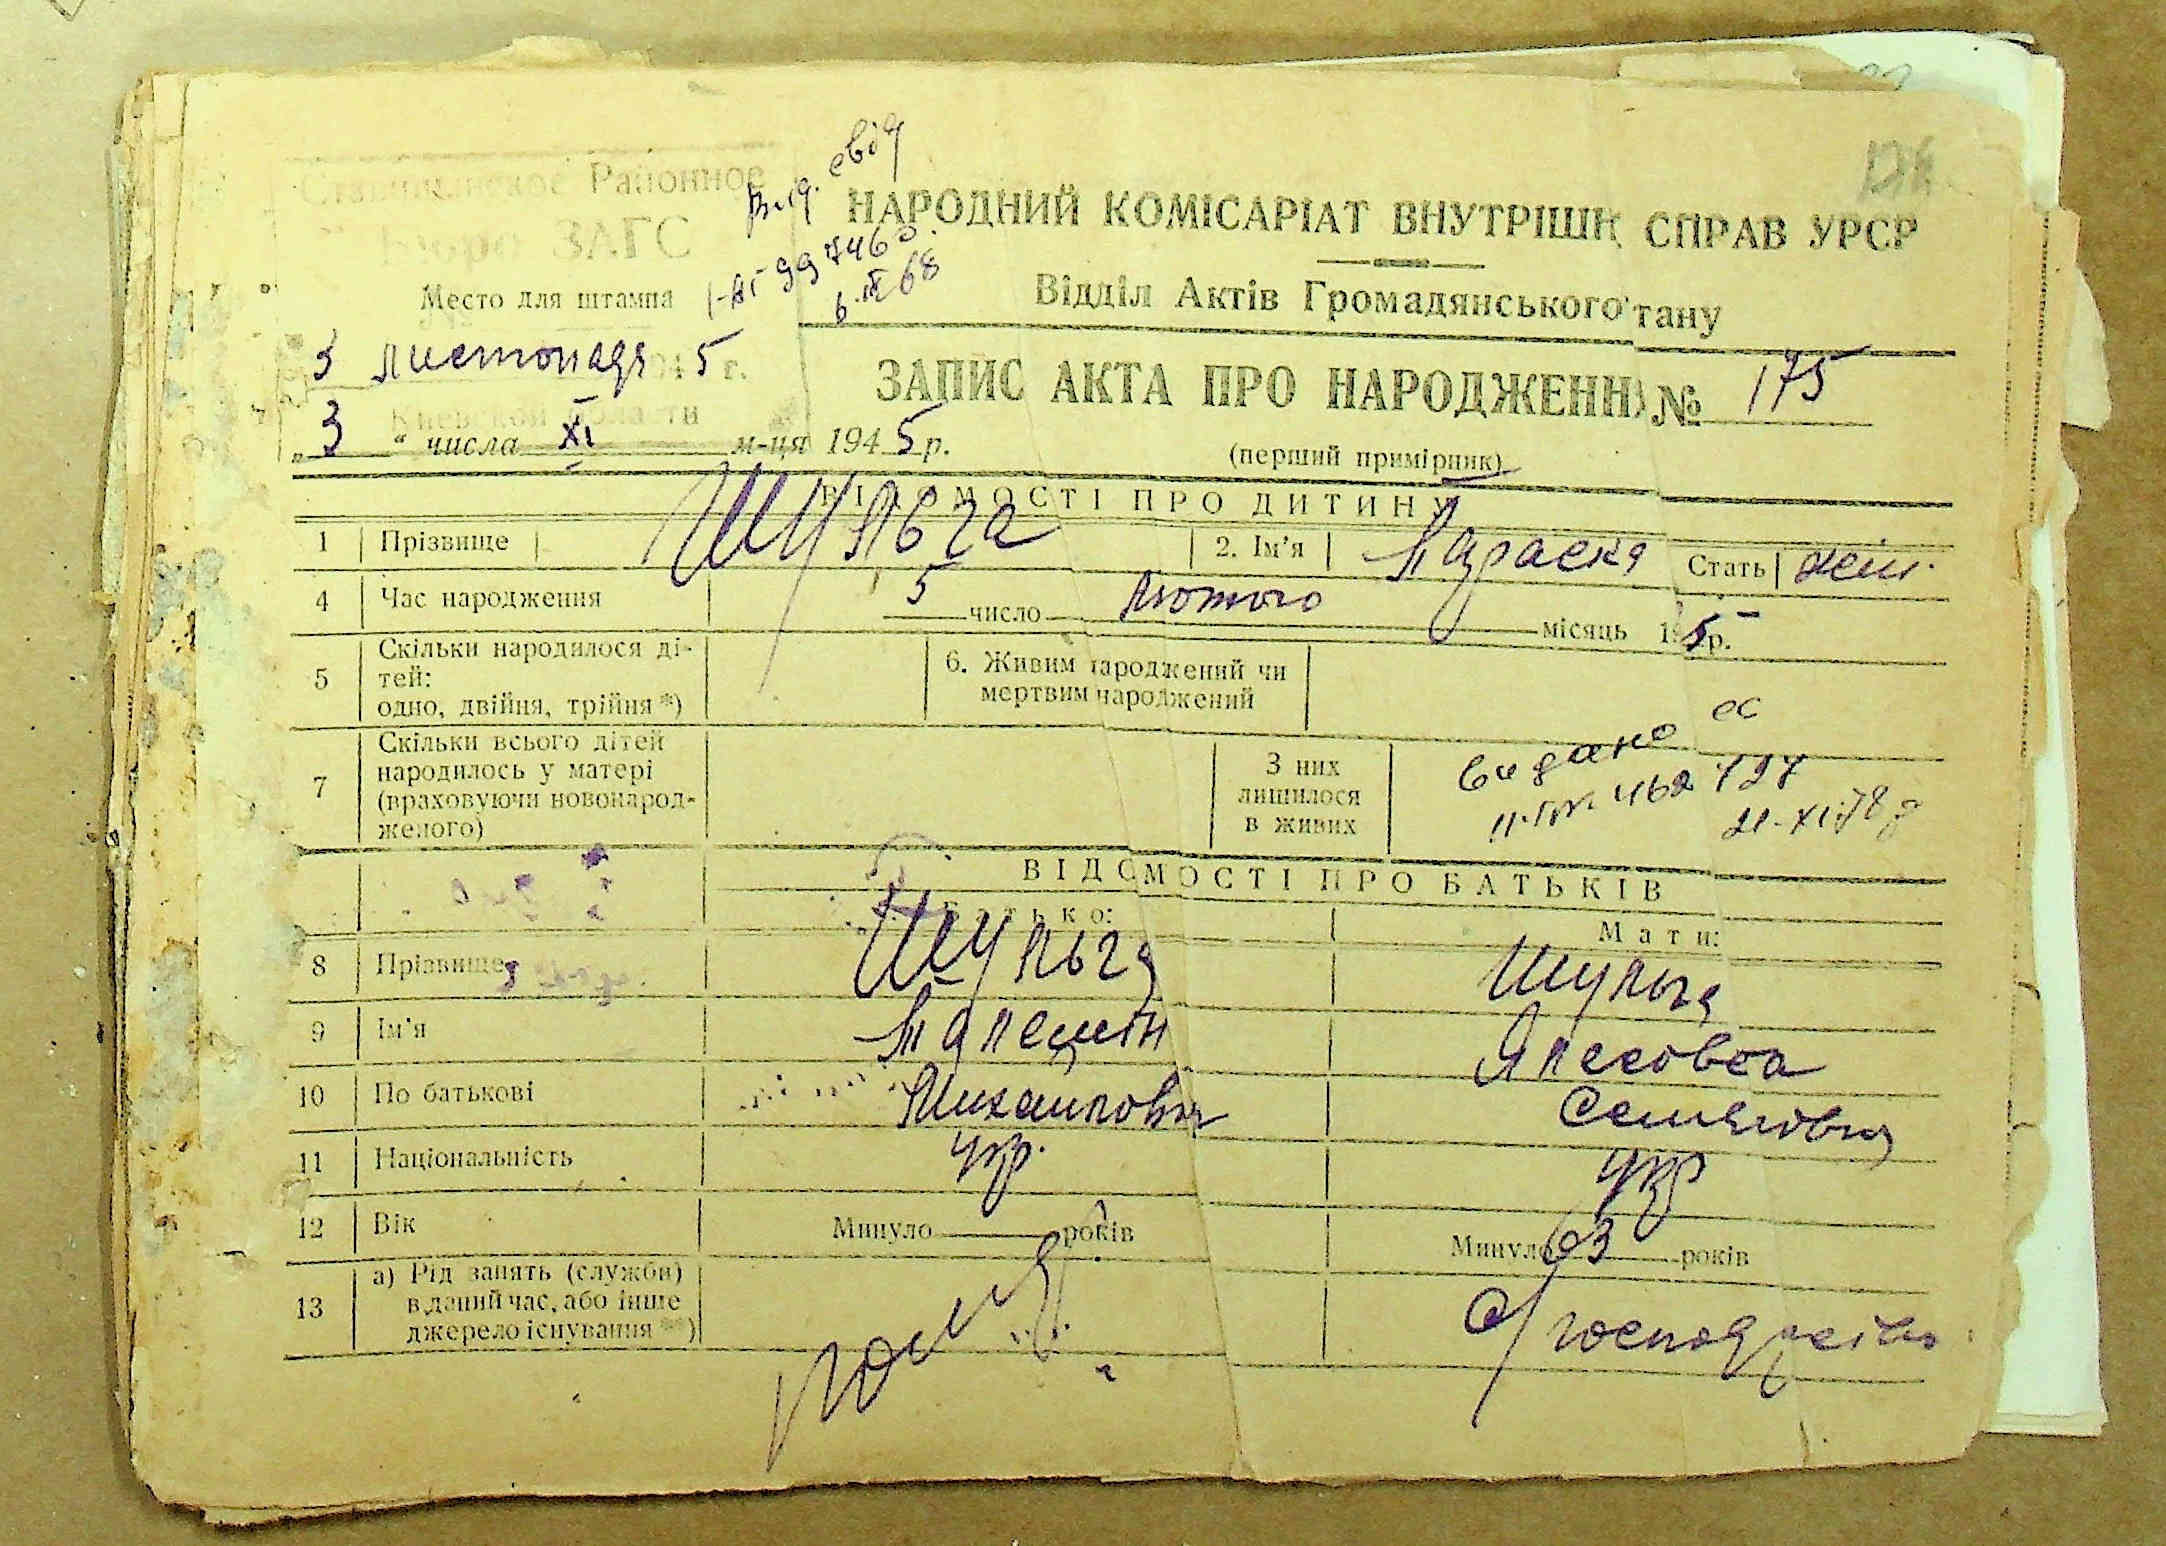 Районное
Бюро ЗАГС
Место для штампа
Вид. свід
I-АГ 997460.
6.IX 68
НАРОДНИЙ КОМІСАРІАТ ВНУТРІШН СПРАВ УРСР
Відділ Актів Громадянського тану
3 листопада 194 5 г.
Киевской области
„ 3 “ числа XI м-ця 194 5 р.
ЗАПИС АКТА ПРО НАРОДЖЕНН № 175
(перший примірник)
ВІДОМОСТІ ПРО ДИТИНУ
1 Прізвище Шульга 2. Ім'я Параска Стать жін.
4 Час народження 5 число лютого місяць 19 5 р.
5 Скільки народилося ді-
тей:
одно, двійня, трійня *)
6. Живим народжений чи
мертвим народжений
7 Скільки всього дітей
народилось у матері
(враховуючи новонарод-
женого)
З них
лишилося
в живих
видано
462727
21-XI-78
ВІДОМОСТІ ПРО БАТЬКІВ
Батько: Мати:
8 Прізвище Шульга Шульга
9 Ім'я
10 По батькові Михайлович Семеновна
11 Національність укр. укр
12 Вік Минуло років Минуло років
13 а) Рід занять (служби)
в даний час, або інше
джерело існування **)